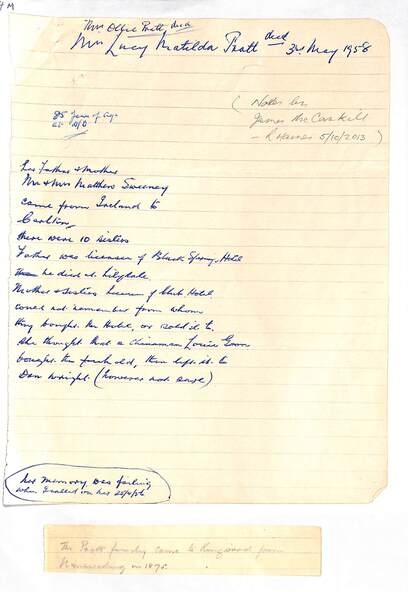 Mrs Ollie Pratt died
Mrs Lucy Matilda Pratt died 3rd May 1958
85 years of age
(Notes by
James McCaskill
- R Haines 5/10/2013)
her Father & Mother
Mr & Mrs Matthew Sweeney
came from Ireland to
Carlton
there were 10 sisters
Father was licensee of Black Spring Hotel
he died at Lilydale
Mother & Sisters licensee of Club Hotel
could not remember from whom
they bought the Hotel, or sold it to.
she thought that a Chinaman Louie Goon
bought the freehold, then left it to
Dan Wright. (however not sure)
her memory was failing
when I called on her 25/4/56
The Pratt family came to Ringwood from
Nunawading in 1875.